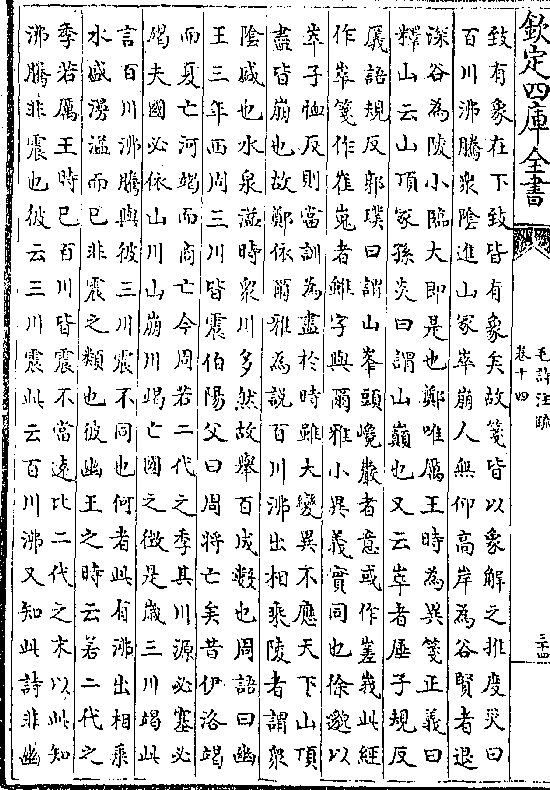 欽定四庫全書
毛詩注疏
卷十四
三十四
致有象在下致皆有象矣故箋皆以象解之推度災曰
百川沸騰衆陰進山冢崒崩人無仰高岸為谷賢者退
深谷為陵小臨大即是也鄭唯厲王時為異箋正義曰
釋山云山頂冢孫炎曰謂山巔也又云崒者厜子規反
㕒語規反郭璞曰謂山峯頭巉巖者意或作嵳峩此經
作崒箋作崔嵬者雖字與爾雅小異義實同也徐邈以
崒子恤反則當訓為盡於時雖大變異不應天下山頂
盡皆崩也故鄭依爾雅為説百川沸出相乘陵者謂衆
陰盛也水泉溢時衆川多然故舉百成數也周語曰幽
王三年西周三川皆震伯陽父曰周將亡矣昔伊洛竭
而夏亡河竭而商亡今周若二代之季其川源必塞必
竭夫國必依山川山崩川竭亡國之徴是歳三川竭此
言百川沸騰與彼三川震不同也何者此有沸出相乘
水盛湧溢而已非震之類也彼幽王之時云若二代之
季若厲王時已百川皆震不當遠比二代之末以此知
沸騰非震也彼云三川震此云百川沸又知此詩非幽